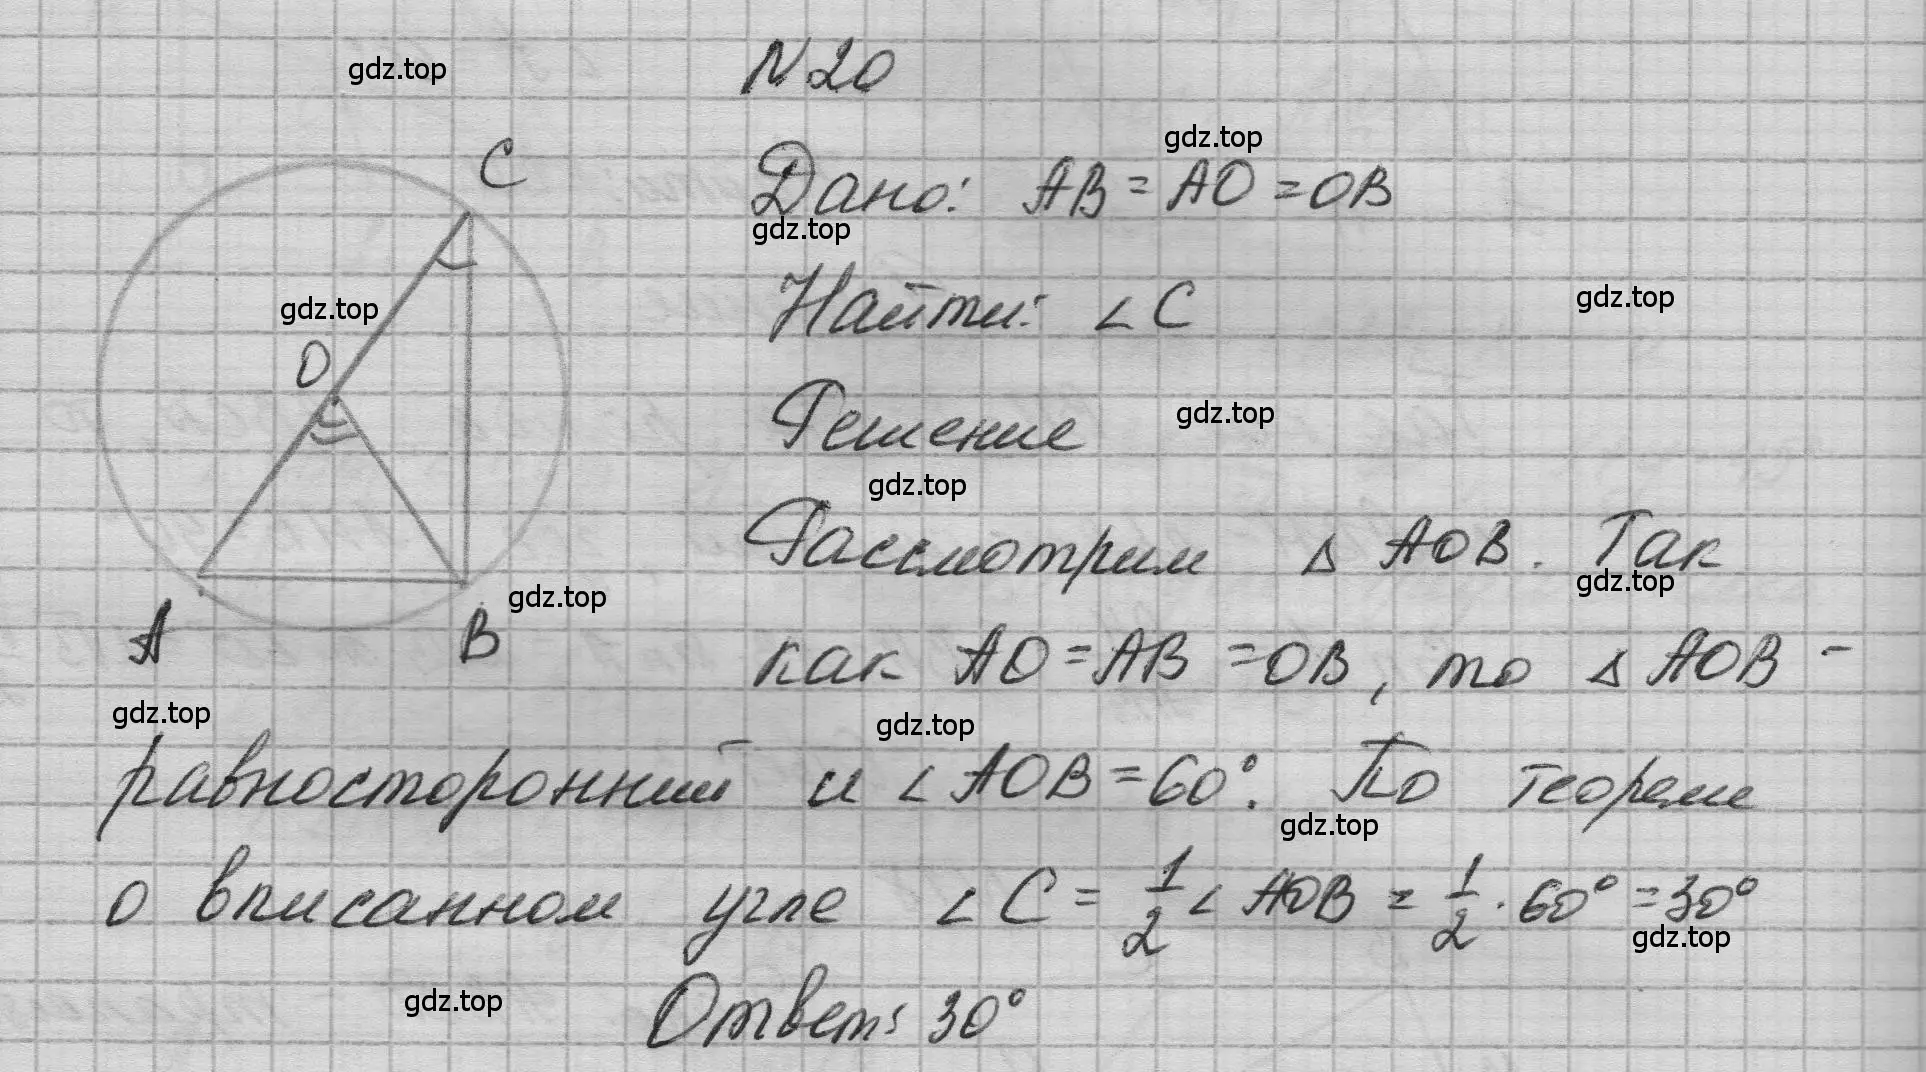 gdz.top
N20
gdz.top
C
Дано: AB = AO = OB
gdz.top
Найти: ∠C
gdz.top
gdz.top
O
Решение
gdz.top
gdz.top
Рассмотрим △ AOB. Так
gdz.top
gdz.top
A
B
как AO = AB = OB, то △ AOB -
gdz.top
gdz.top
равносторонний и ∠ AOB = 60°. По теореме
gdz.top
о вписанном угле ∠ C = 1/2 ∠ AOB = 1/2 · 60° = 30°
gdz.top
gdz.top
Ответ: 30°